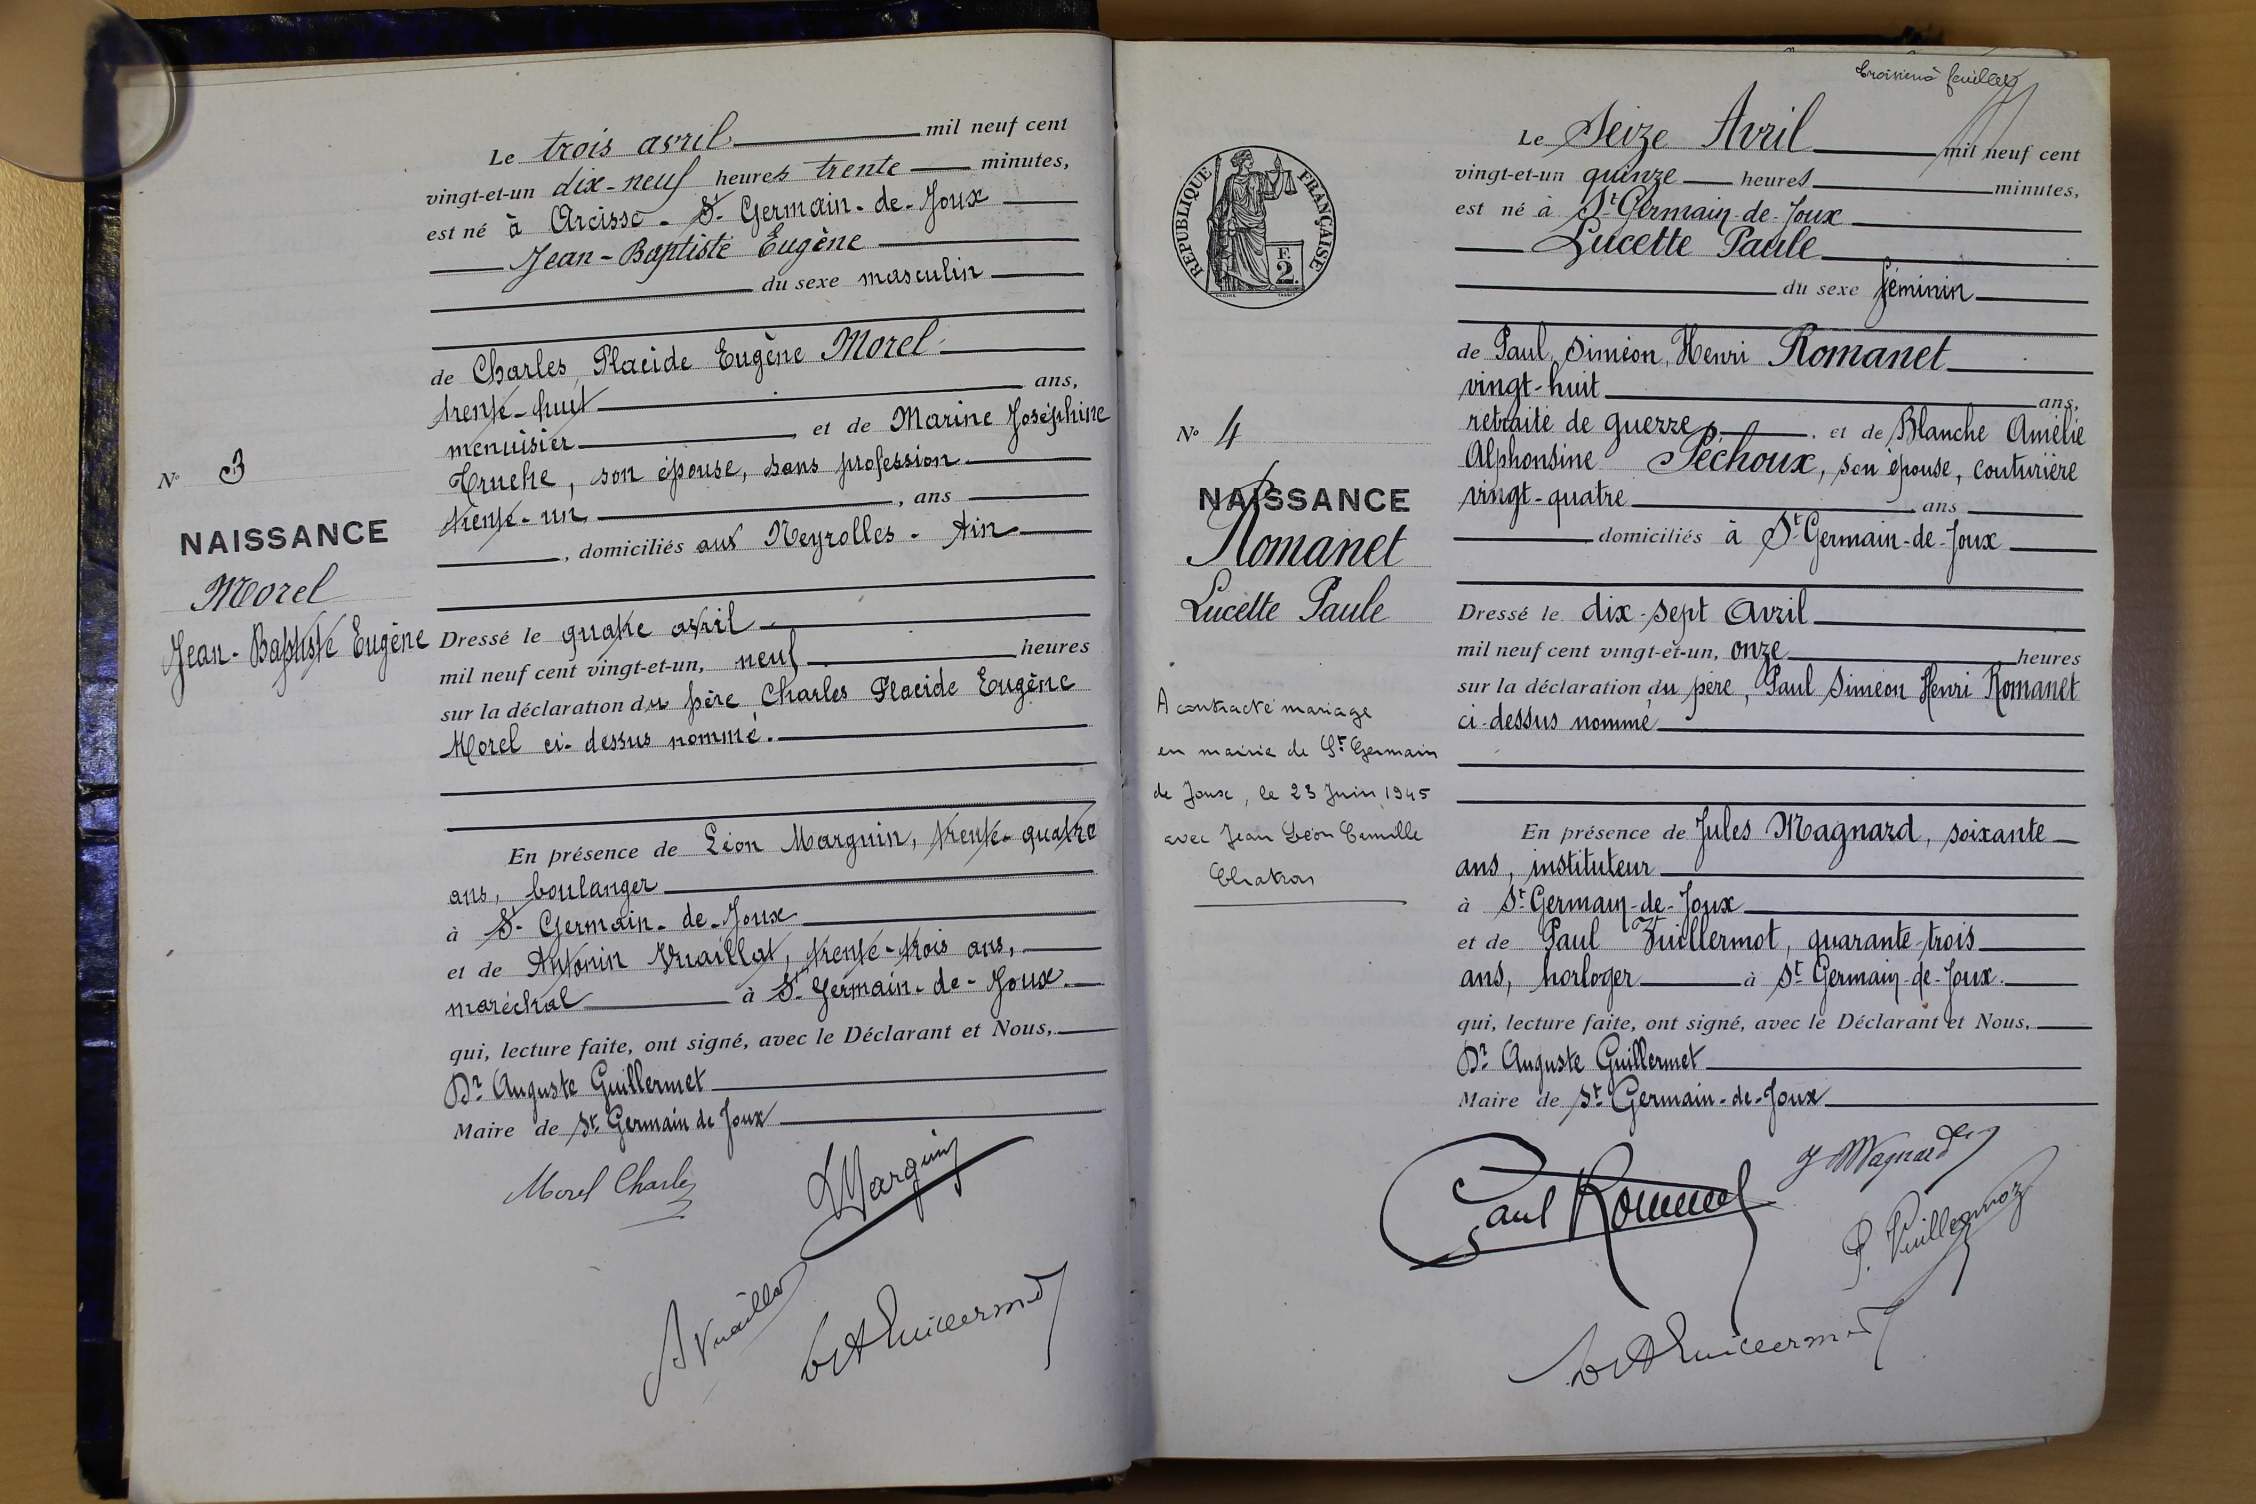 Le trois avril mil neuf cent
vingt-et-un dix-neuf heures trente minutes,
est né à Arcisse - St Germain-de-Joux
Jean-Baptiste Eugène
du sexe masculin
de Charles, Placide Eugène Morel
trente-huit ans,
menuisier, et de Marine Joséphine
Truche, son épouse, sans profession
trente-un, ans
, domiciliés aux Neyrolles - Ain
No 3
NAISSANCE
Morel
Jean-Baptiste Eugène
Dressé le quatre avril
mil neuf cent vingt-et-un, neuf heures
sur la déclaration du père, Charles Placide Eugène
Morel ci-dessus nommé.
En présence de Léon Marguin, trente-quatre
ans, boulanger
à St Germain-de-Joux
et de Antonin Vuaillat, trente-trois ans,
maréchal à St Germain-de-Joux.
qui, lecture faite, ont signé, avec le Déclarant et Nous,
Dr Auguste Guillermet
Maire de St Germain de Joux
Morel Charles
L Marguin
A Vuaillat
Dr A Guillermet
troisième feuillet
RÉPUBLIQUE FRANÇAISE
F.
2.
Le Seize Avril mil neuf cent
vingt-et-un quinze heures minutes,
est né à St Germain-de-Joux
Lucette Paule
du sexe féminin
de Paul, Siméon, Henri Romanet
vingt-huit ans,
retraité de guerre, et de Blanche Amélie
Alphonsine Péchoux, son épouse, couturière
vingt-quatre, ans
domiciliés à St Germain-de-Joux
No 4
NAISSANCE
Romanet
Lucette Paule
A contracté mariage
en mairie de St Germain
de Joux, le 23 Juin 1945
avec Jean Léon Camille
Chatron
Dressé le dix-sept Avril
mil neuf cent vingt-et-un, onze heures
sur la déclaration du père, Paul Siméon Henri Romanet
ci-dessus nommé
En présence de Jules Magnard, soixante
ans, instituteur
à St Germain-de-Joux
et de Paul Vuillermot, quarante-trois
ans, horloger à St Germain-de-Joux.
qui, lecture faite, ont signé, avec le Déclarant et Nous,
Dr Auguste Guillermet
Maire de St Germain-de-Joux
Paul Romanet
J Magnard
P. Vuillermoz
Dr A Guillermet